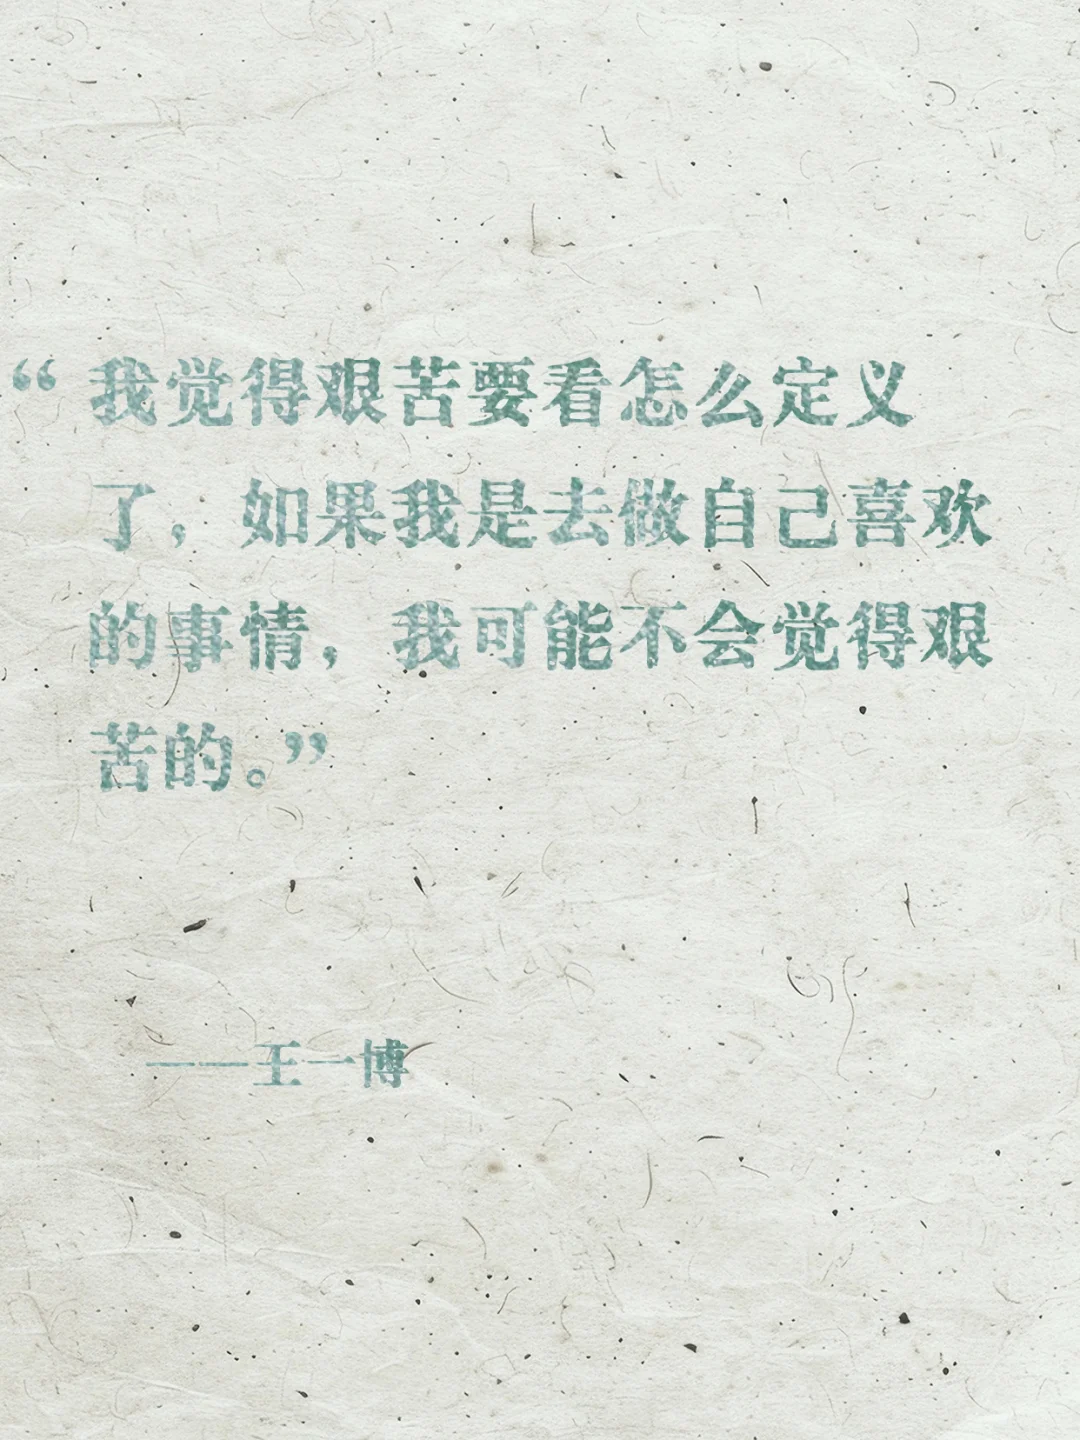 “我觉得艰苦要看怎么定义
了，如果我是去做自己喜欢
的事情，我可能不会觉得艰
苦的。”
——王一博